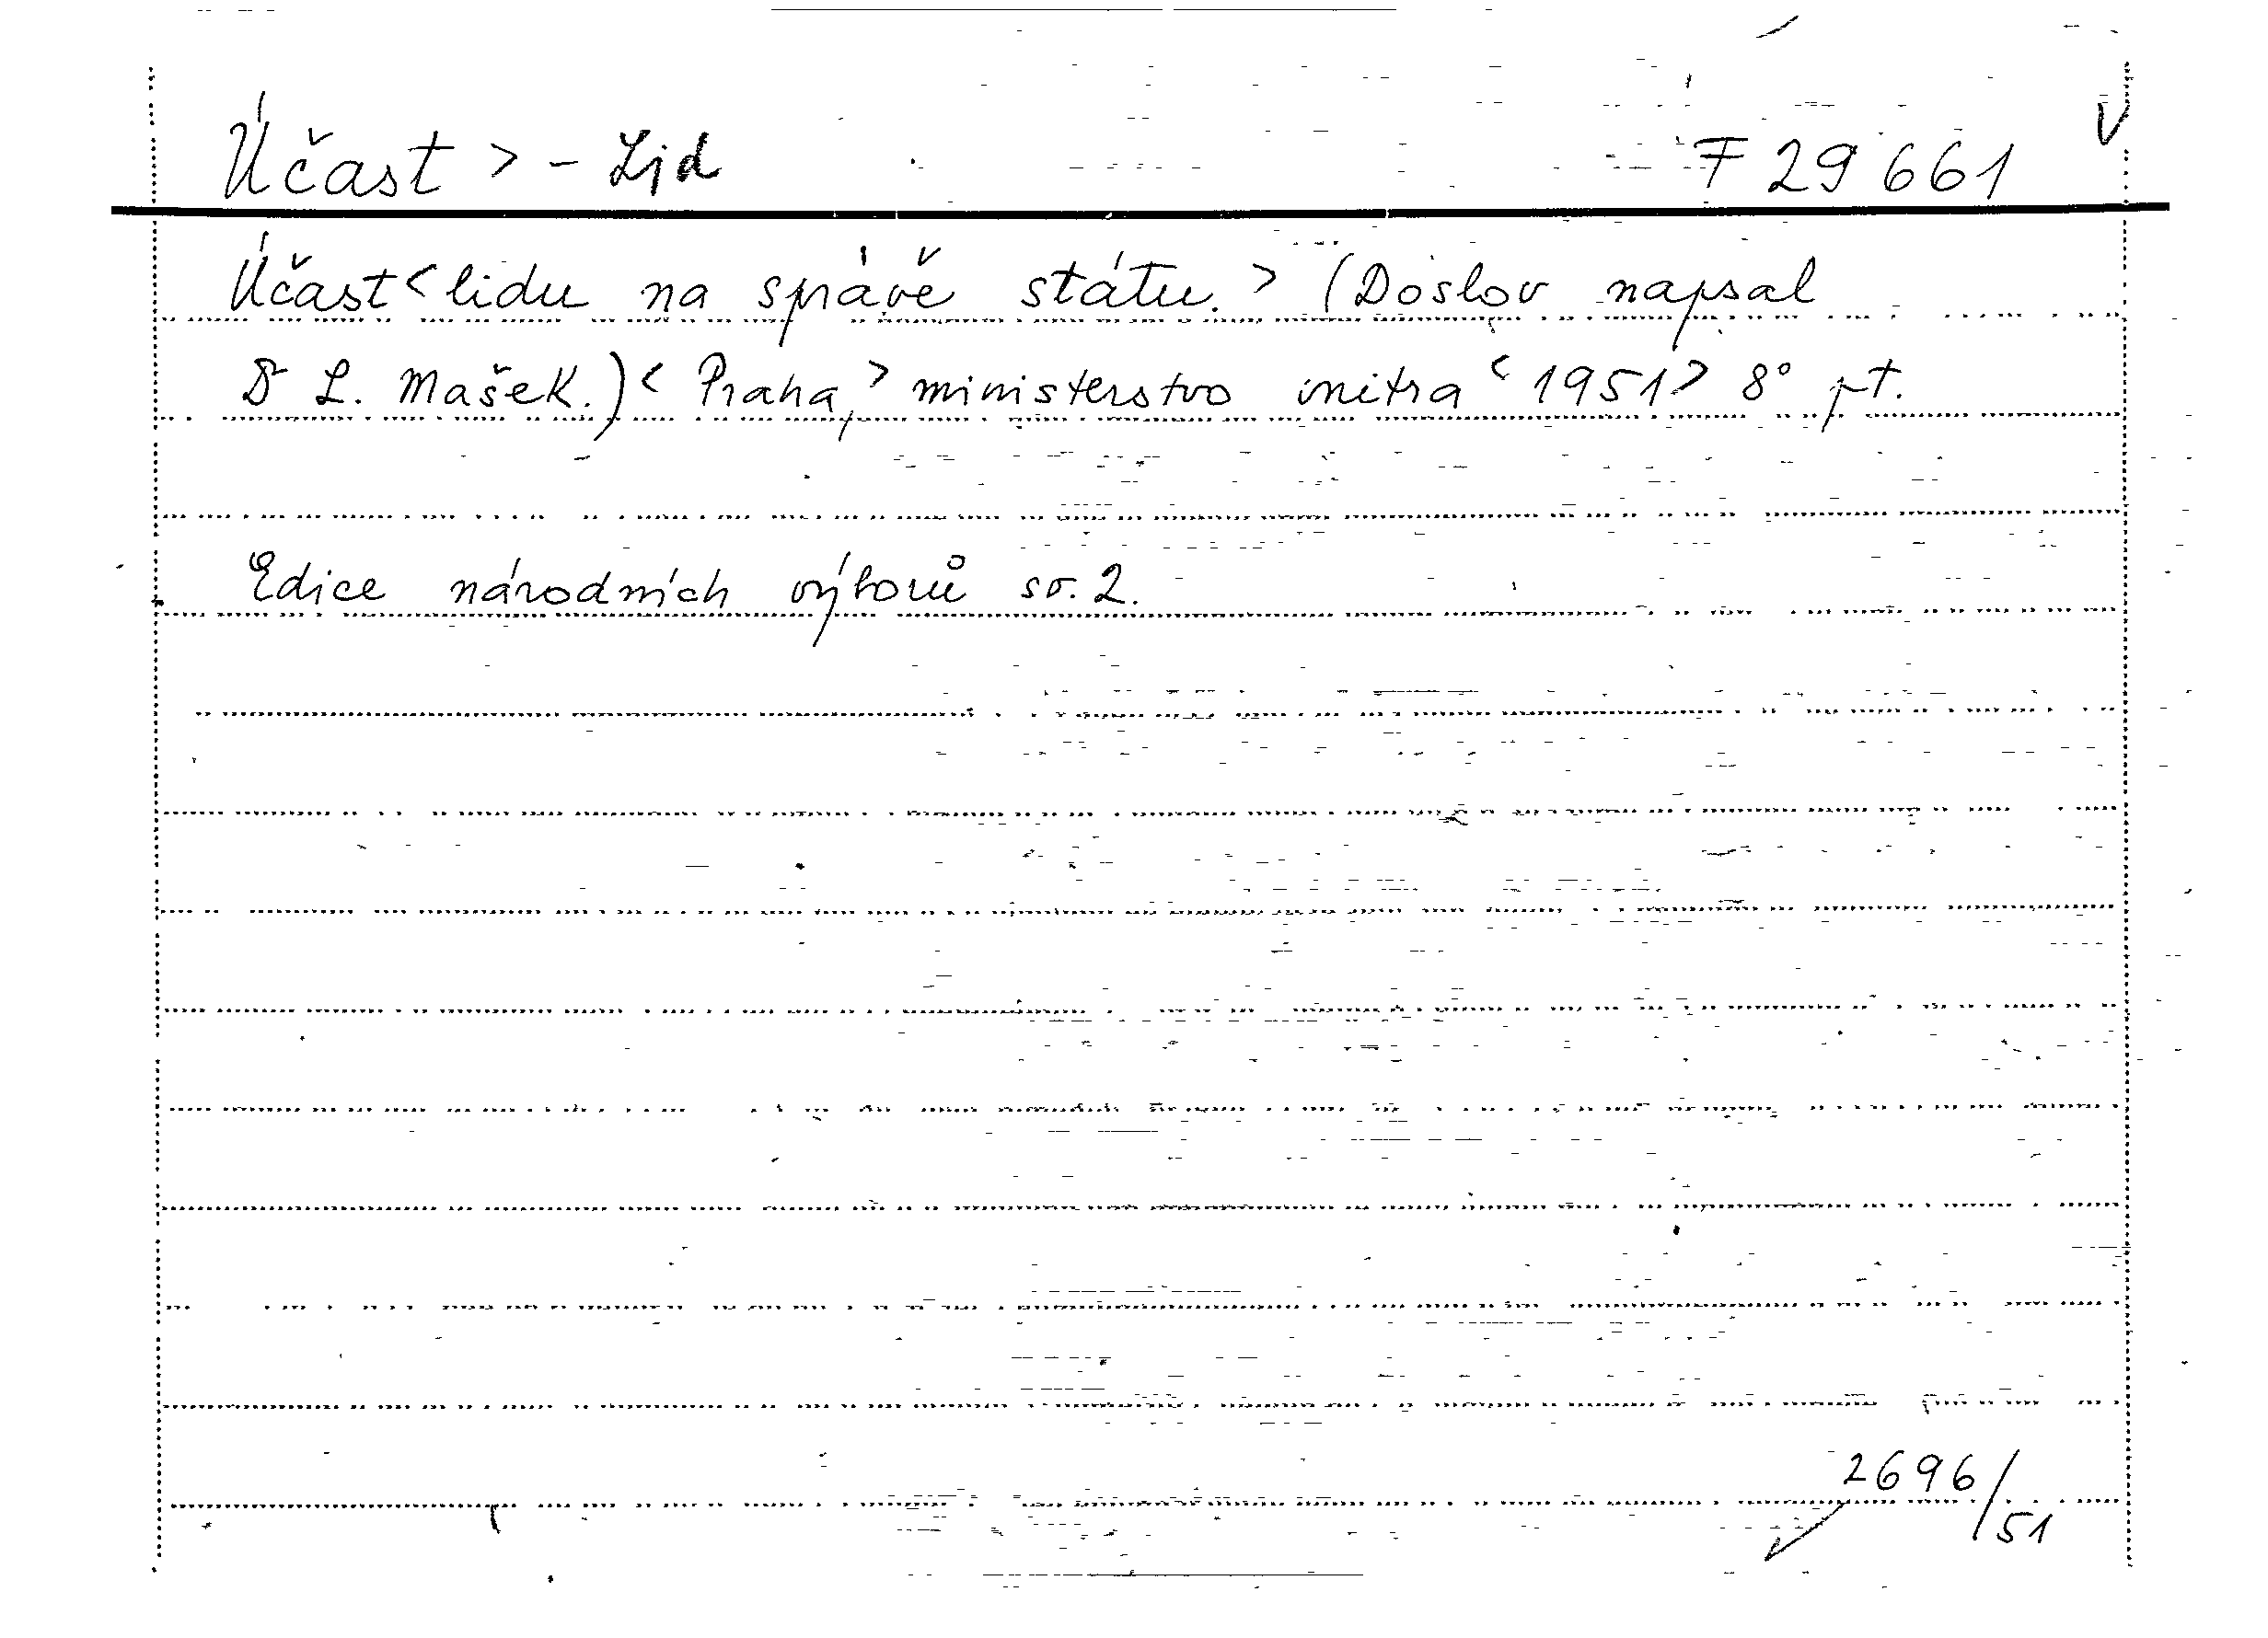 Účast > - Lid F 29 661 V
Účast < lidu na správě státu. > (Doslov napsal
Dr L. Mašek.) < Praha, > ministerstvo vnitra < 1951 > 8° pt.
Edice národních výborů sv. 2.
2696/51